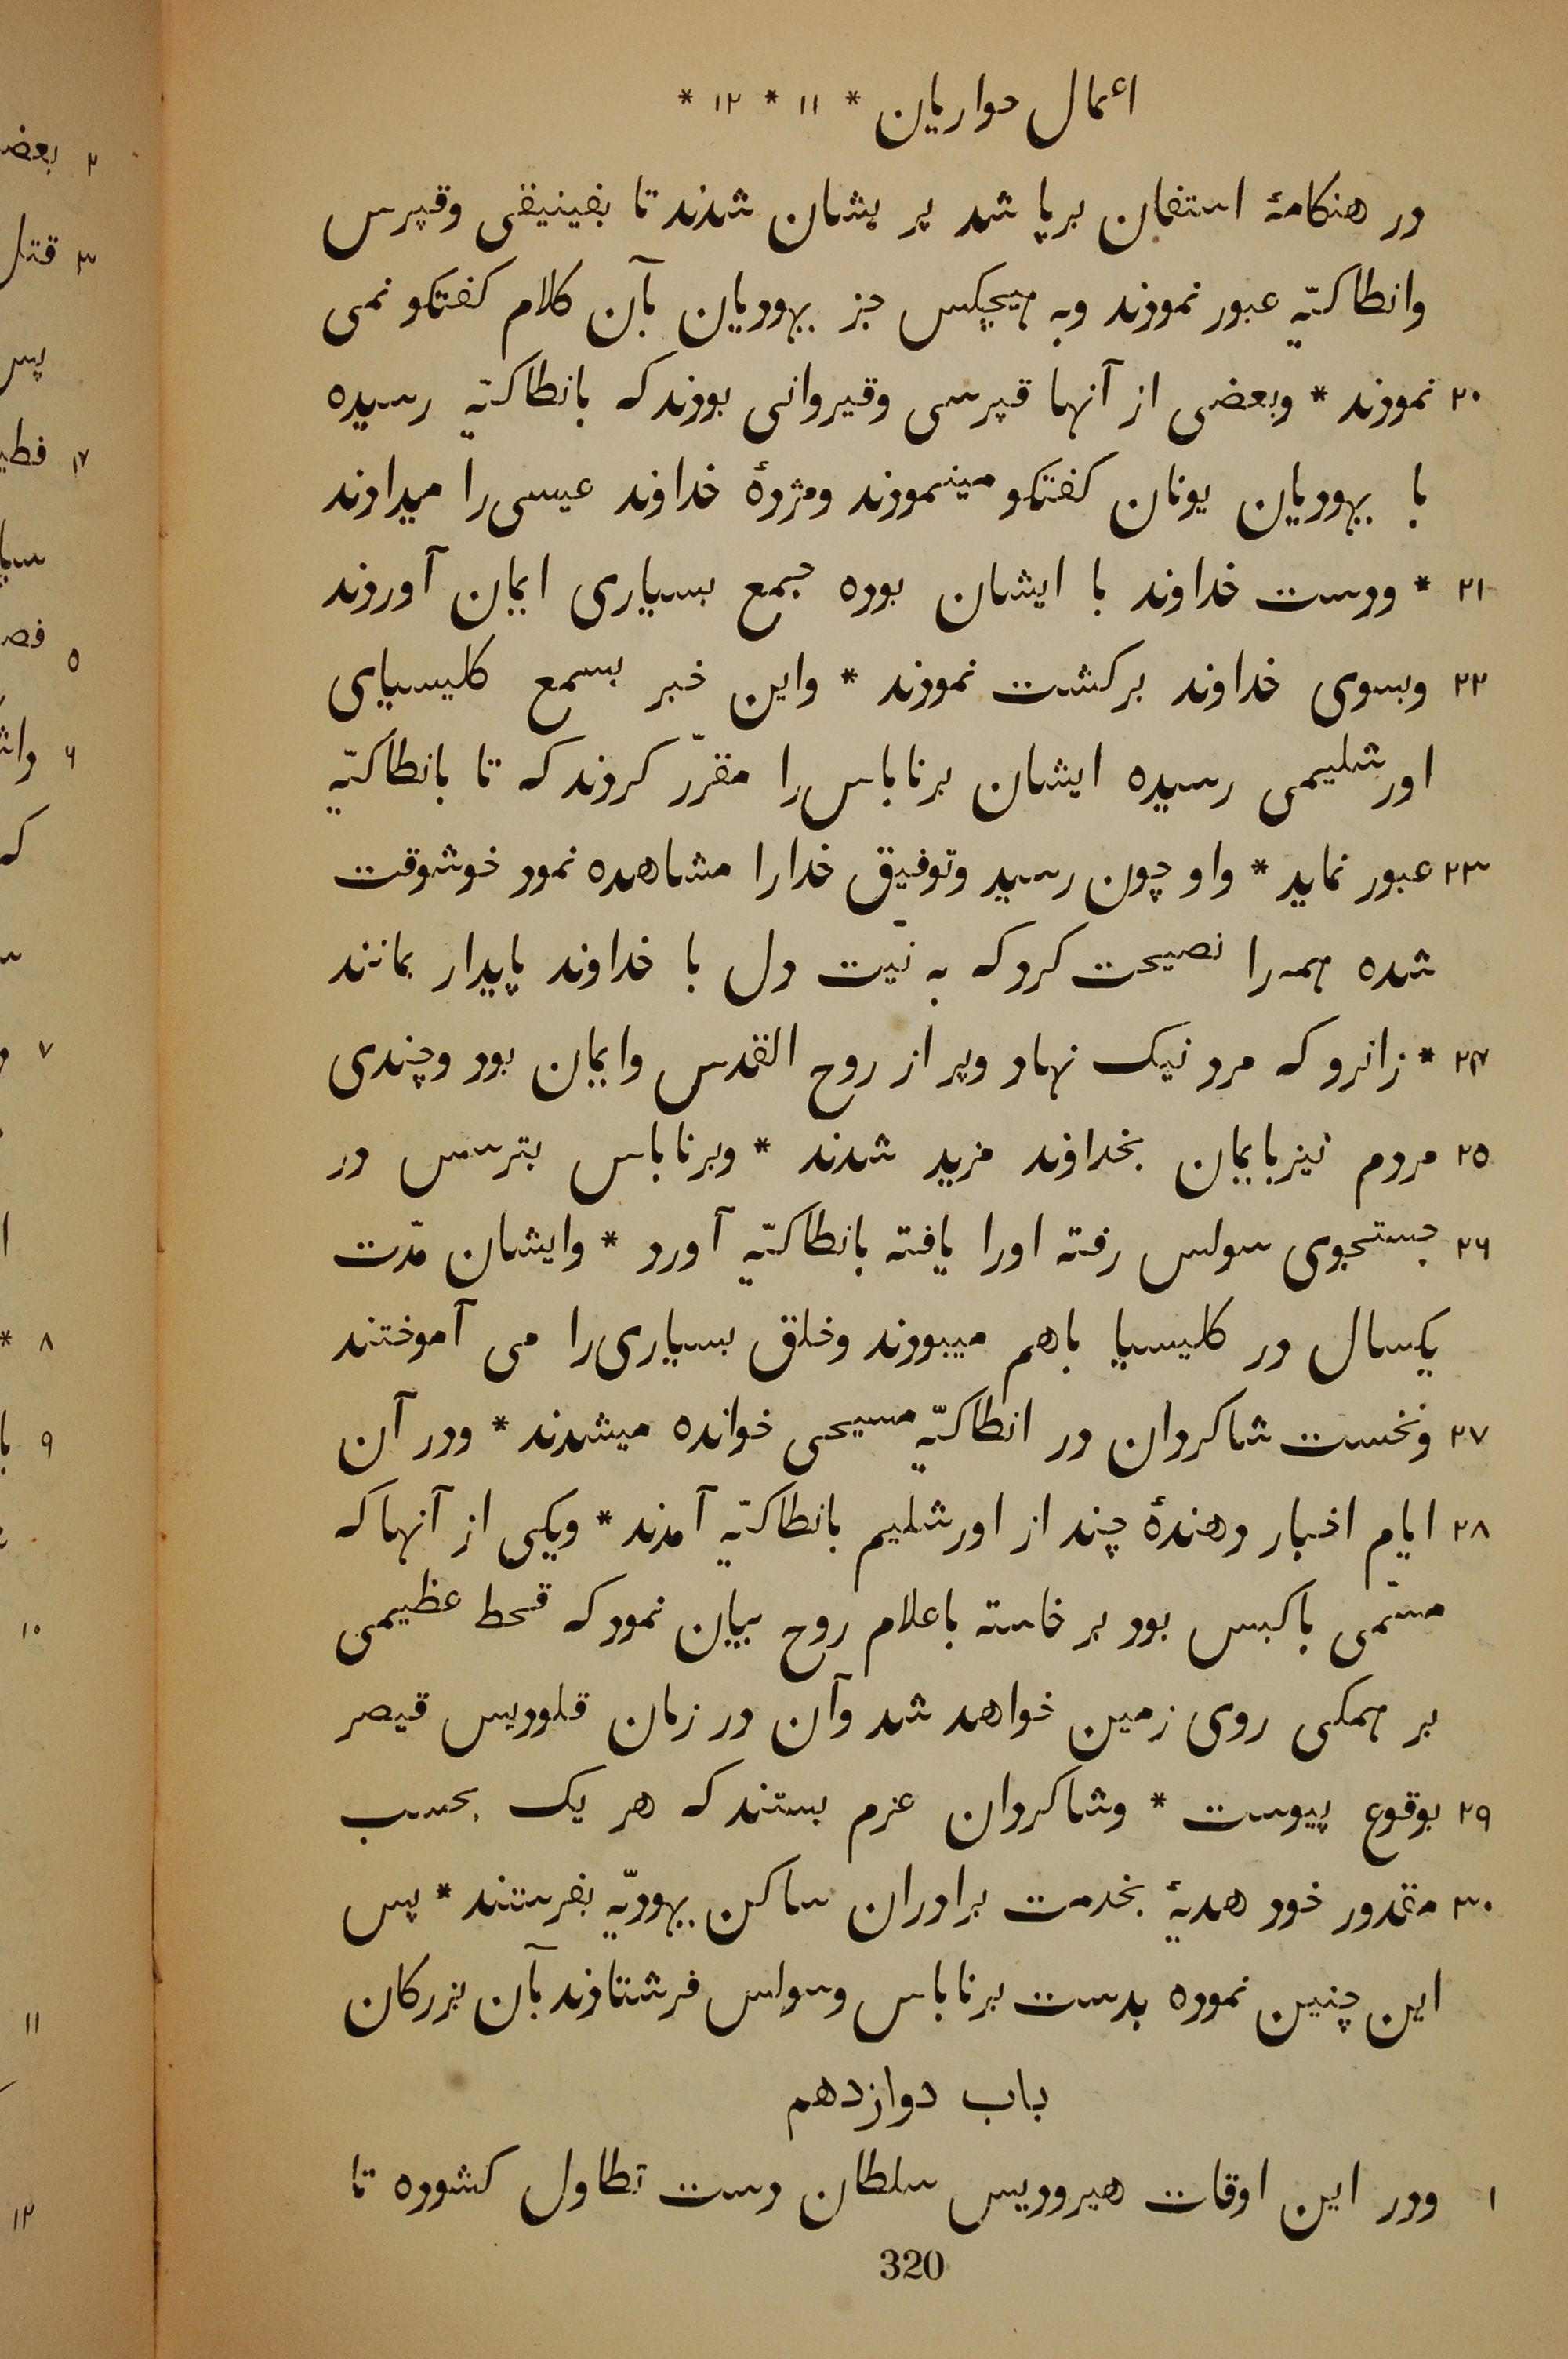 اعمال حواریان * ۱۱ * ۱۲ *
در هنکامهٔ استفان برپا شد پریشان شدند تا بفینیقی وقپرس
وانطاکیّه عبور نمودند وبه هیچکس جز یهودیان بآن کلام کفتکو نمی
۲۰ نمودند * وبعضی از آنها قپرسی وقیروانی بودند که بانطاکیّه رسیده
با یهودیان یونان کفتکو مینمودند ومژدهٔ خداوند عیسی را میدادند
۲۱ * ودست خداوند با ایشان بوده جمع بسیاری ایمان آوردند
۲۲ وبسوی خداوند برکشت نمودند * واین خبر بسمع کلیسیای
اورشلیمی رسیده ایشان برناباس را مقرّر کردند که تا بانطاکیّه
۲۳ عبور نماید * واو چون رسید وتوفیق خدارا مشاهده نمود خوشوقت
شده همه را نصیحت کرد که به نیّت دل با خداوند پایدار بمانند
۲۴ * زانرو که مرد نیک نهاد وپر از روح القدس وایمان بود وچندی
۲۵ مردم نیز بایمان بخداوند مزید شدند * وبرناباس بترسس در
۲۶ جستجوی سولس رفته اورا یافته بانطاکیّه آورد * وایشان مدّت
یکسال در کلیسیا باهم میبودند وخلق بسیاری را می آموختند
۲۷ ونخست شاکردان در انطاکیّه مسیحی خوانده میشدند * ودر آن
۲۸ ایام اخبار دهندهٔ چند از اورشلیم بانطاکیّه آمدند * ویکی از آنها که
مسّمی باکبس بود بر خاسته باعلام روح بیان نمود که قحط عظیمی
بر همکی روی زمین خواهد شد وآن در زمان قلودیس قیصر
۲۹ بوقوع پیوست * وشاکردان عزم بستند که هر یک بحسب
۳۰ مقدور خود هدیهٔ بخدمت برادران ساکن یهودیّه بفرستند * پس
این چنین نموده بدست برناباس وسولس فرشتادند بآن بزرکان
باب دوازدهم
۱ ودر این اوقات هیرودیس سلطان دست تطاول کشوده تا
320